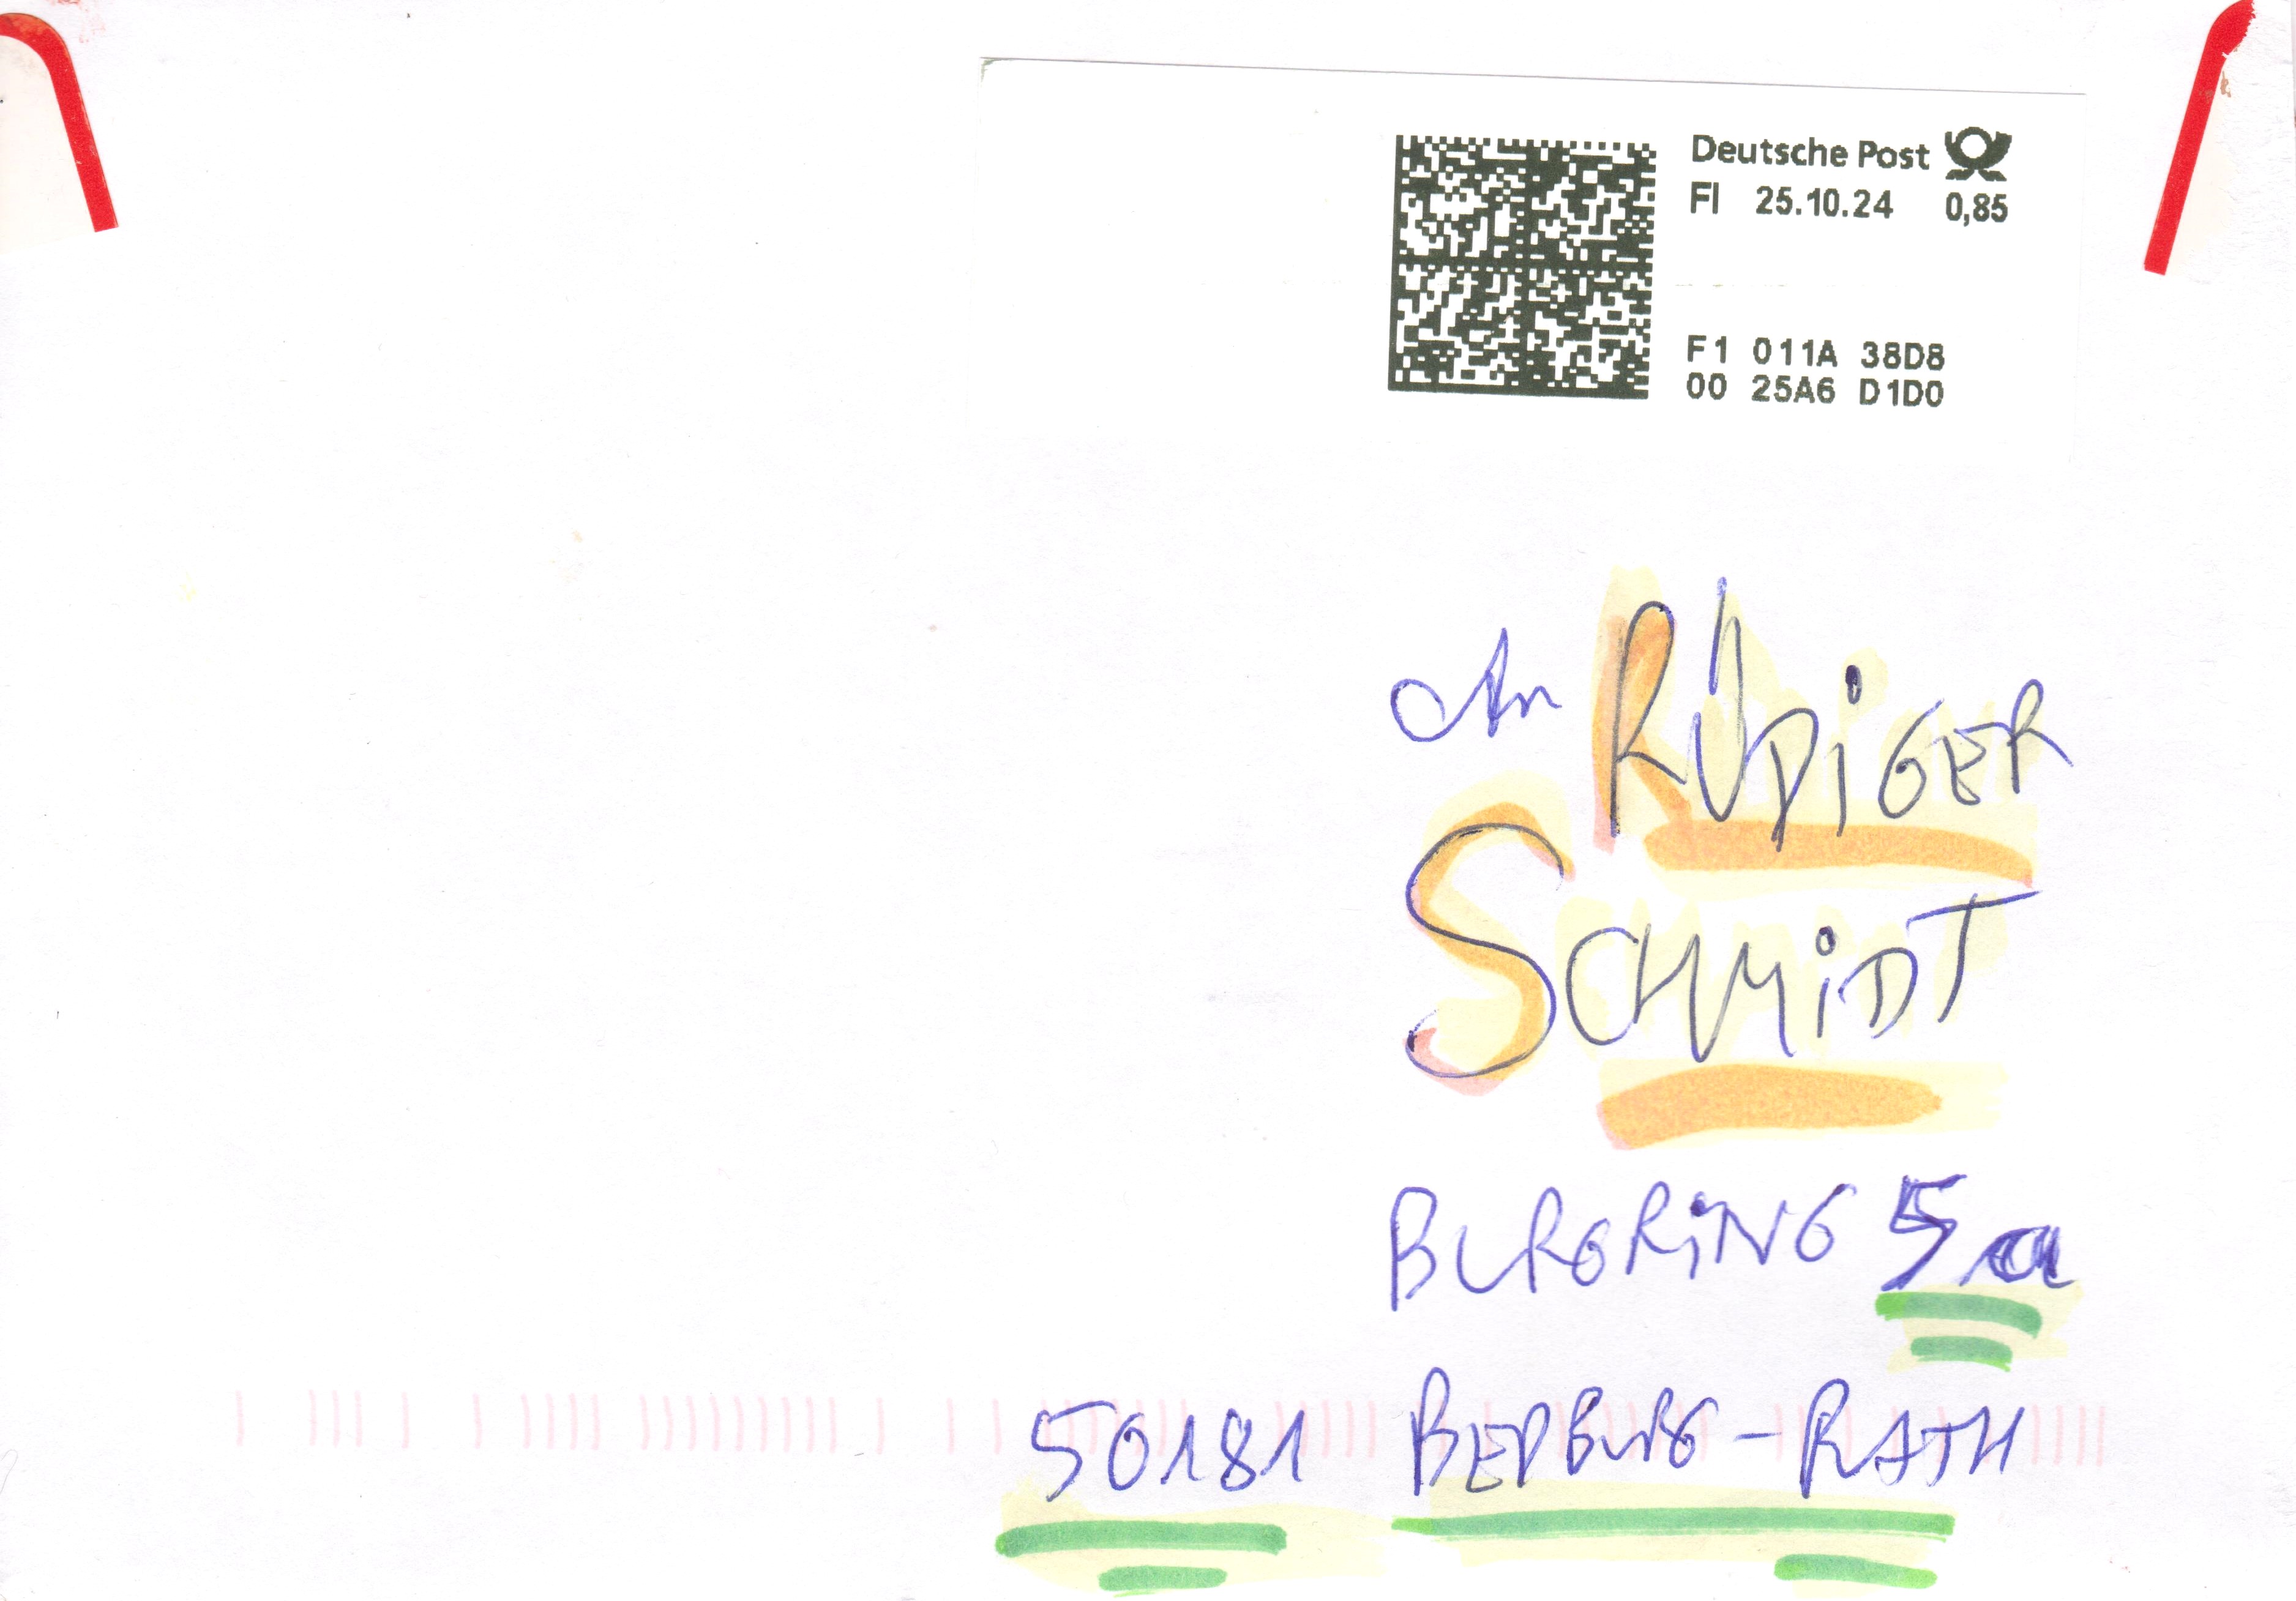 Deutsche Post
FI 25.10.24 0,85
F1 011A 38D8
00 25A6 D1D0
An RÜDiGER
SCHMiDT
BURGRiNG 5a
50181 BEDBURG-RATH